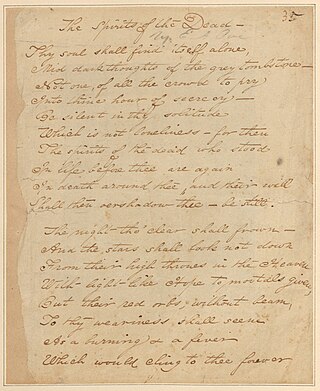 35
The Spirits of the Dead —
By E. A. Poe
Thy soul shall find itself alone
'Mid dark thoughts of the grey tombstone —
Not one, of all the crowd to pry
Into thine hour of secrecy —
Be silent in that solitude
Which is not loneliness — for then
The spirits of the dead who stood
In life before thee are again
In death around thee, and their will
Shall then overshadow thee — be still.
The night tho' clear shall frown —
And the stars shall look not down
From their high thrones in the Heaven
With light like Hope to mortals given,
But their red orbs, without beam,
To thy weariness shall seem
As a burning & a fever
Which would cling to thee forever